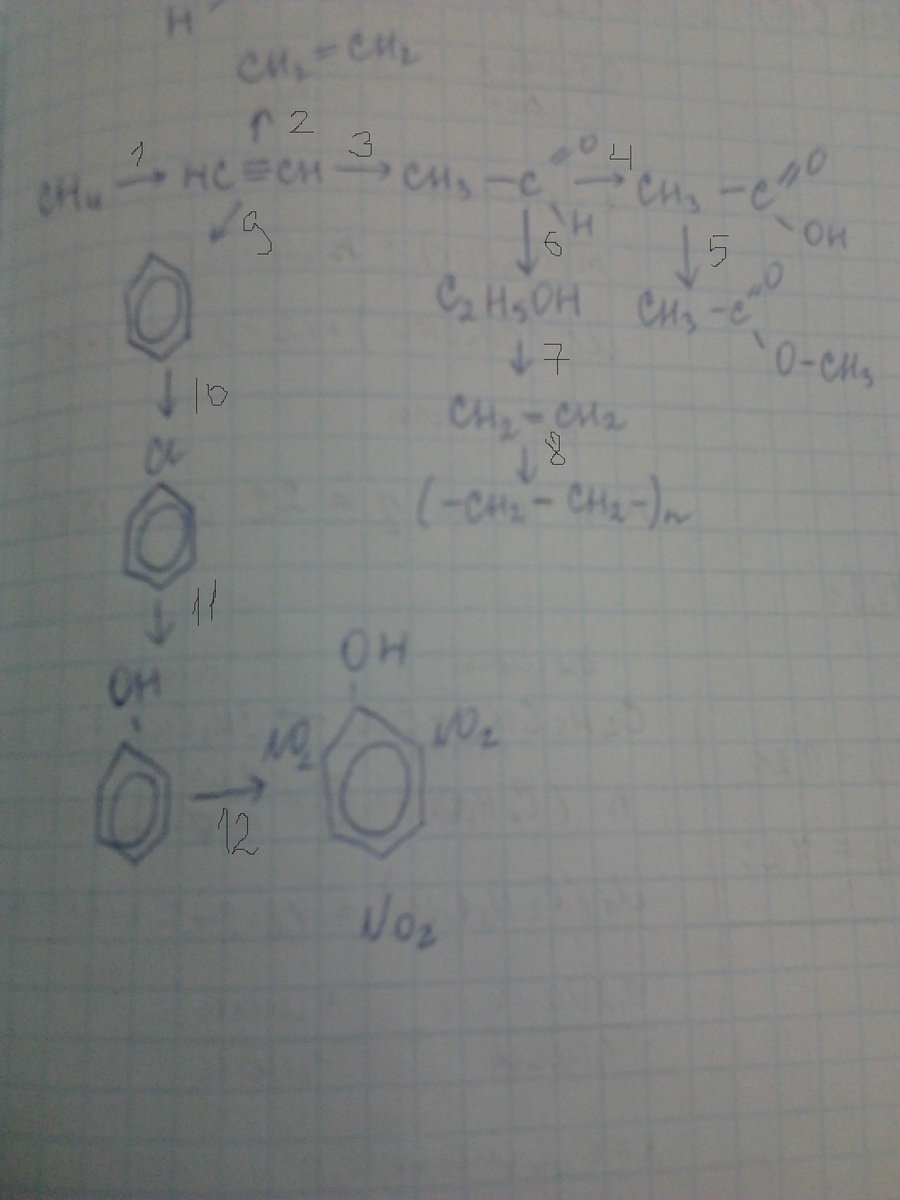 H
CH₂=CH₂
↑ 2
CH₄ →1 HC≡CH →3 CH₃-C=O →4 CH₃-C=O
H OH
↙ 9 ↓ 6 ↓ 5
C₂H₅OH CH₃-C=O
O-CH₃
↓ 10 ↓ 7
CH₂=CH₂
Cl ↓ 8
(-CH₂-CH₂-)n
↓ 11
OH OH
NO₂ NO₂
→ 12
NO₂